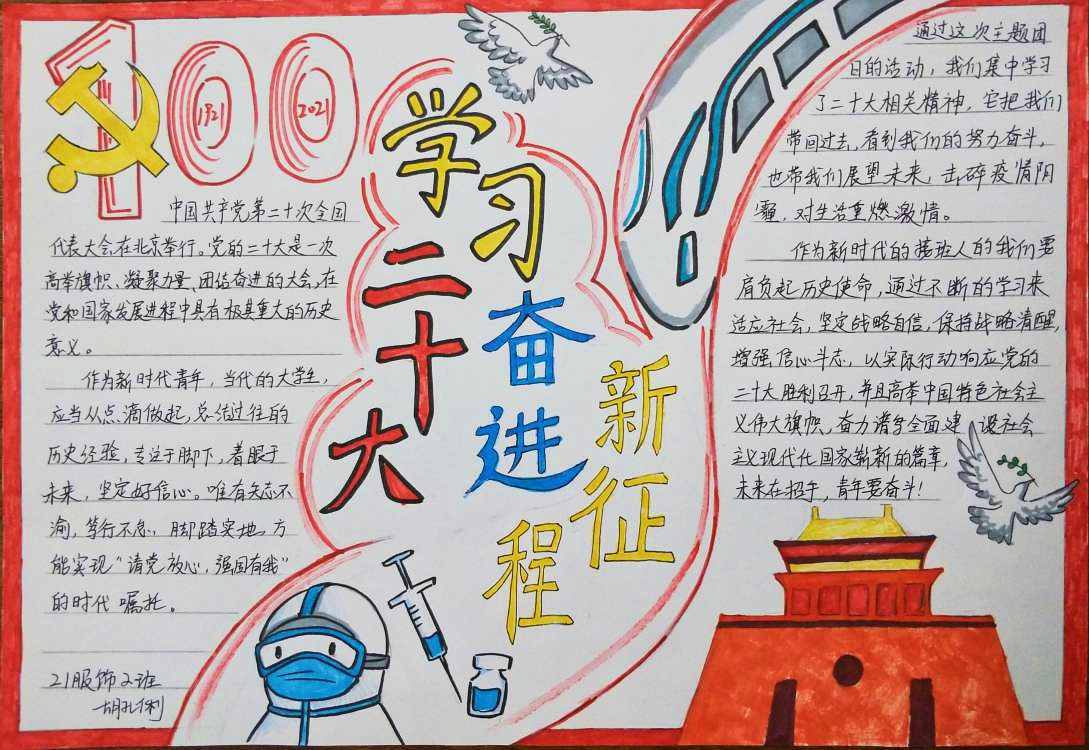 100
1921
2021
学习二十大
奋进新征程
中国共产党第二十次全国
代表大会在北京举行。党的二十大是一次
高举旗帜、凝聚力量、团结奋进的大会,在
党和国家发展进程中具有极其重大的历史
意义。
作为新时代青年,当代的大学生,
应当从点滴做起,总结过往的
历史经验,专注于脚下,着眼于
未来,坚定好信心。唯有矢志不
渝,笃行不怠,脚踏实地,方
能实现“请党放心,强国有我”
的时代嘱托。
21服饰2班
通过这次主题团
日的活动,我们集中学习
了二十大相关精神,它把我们
带回过去,看到我们的努力奋斗,
也带我们展望未来,击碎疫情阴
霾,对生活重燃激情。
作为新时代的接班人的我们要
肩负起历史使命,通过不断的学习来
适应社会,坚定战略自信,保持战略清醒,
增强信心斗志,以实际行动响应党的
二十大胜利召开,并且高举中国特色社会主
义伟大旗帜,奋力谱写全面建设社会
主义现代化国家崭新的篇章,
未来在招手,青年要奋斗!